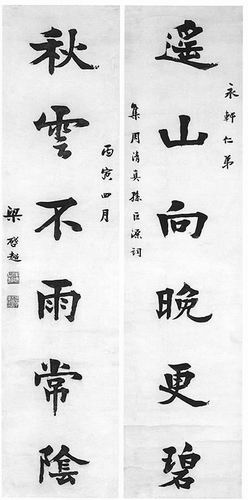 遙山向晚更碧
永軒仁弟
集周清真孫巨源詞
秋雲不雨常陰
丙寅四月
梁啓超